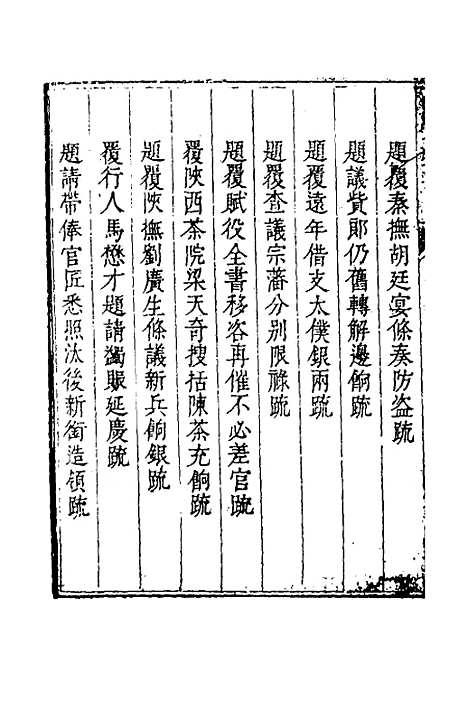 題覆秦撫胡廷宴條奏防盜疏
題議貲郎仍舊轉解邊餉疏
題覆遠年借支太僕銀兩疏
題覆查議宗藩分別限祿疏
題覆賦役全書移咨再催不必差官疏
覆陝西茶院梁天奇搜括陳茶充餉疏
題覆陝撫劉廣生條議新兵餉銀疏
覆行人馬懋才題請蠲賑延慶疏
題請帶俸官匠悉照汰後新銜造領疏